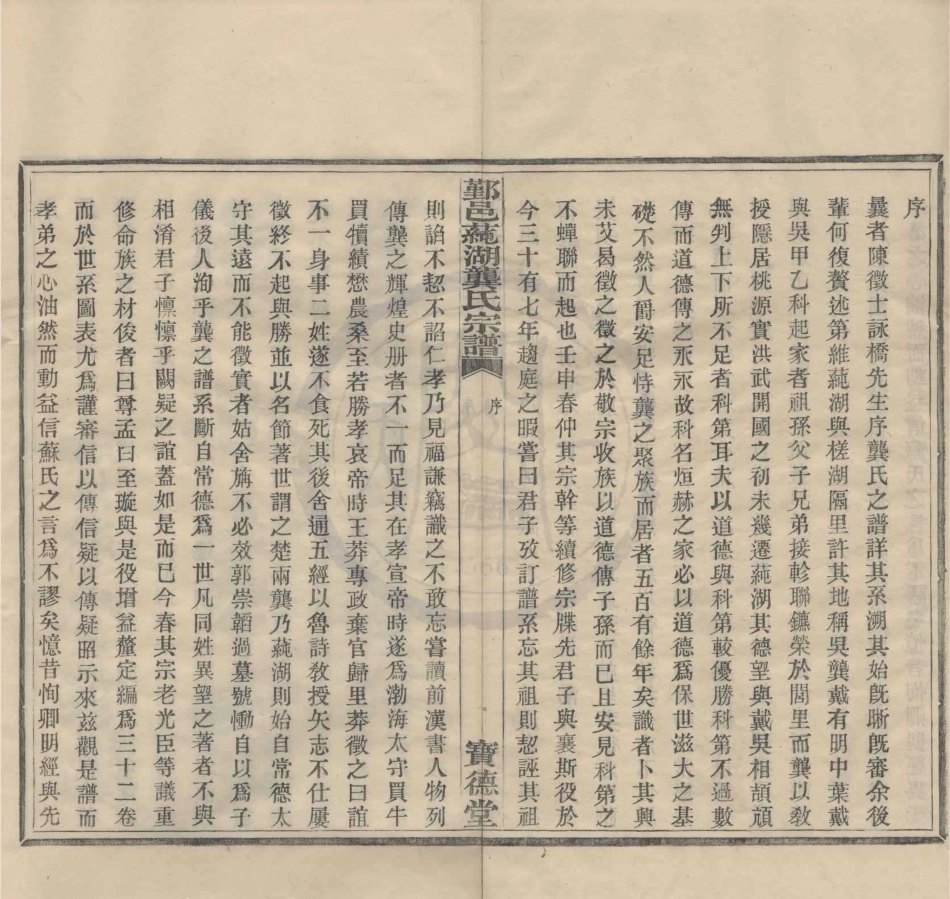 序
曩者陳徵士詠橋先生序龔氏之譜詳其系溯其始旣晰旣審余後
輩何復贅述第維蒓湖與槎湖隔里許其地稱吳龔戴有明中葉戴
與吳甲乙科起家者祖孫父子兄弟接軫聯鑣榮於閭里而龔以敎
授隱居桃源實洪武開國之初未幾遷蒓湖其德望與戴吳相頡頏
無判上下所不足者科第耳夫以道德與科第較優勝科第不過數
傳而道德傳之永永故科名烜赫之家必以道德爲保世滋大之基
礎不然人爵安足恃龔之聚族而居者五百有餘年矣識者卜其興
未艾曷徵之徵之於敬宗收族以道德傳子孫而巳且安見科第之
不蟬聯而起也壬申春仲其宗幹等續修宗牒先君子與襄斯役於
今三十有七年趨庭之暇嘗曰君子攷訂譜系忘其祖則恝誣其祖
鄞邑蒓湖龔氏宗譜
序
寶德堂
則諂不恝不諂仁孝乃見福謙竊識之不敢忘嘗讀前漢書人物列
傳龔之輝煌史册者不一而足其在孝宣帝時遂爲渤海太守買牛
買犢績懋農桑至若勝孝哀帝時王莽專政棄官歸里莽徵之曰誼
不一身事二姓遂不食死其後舍通五經以魯詩敎授矢志不仕屢
徵終不起與勝並以名節著世謂之楚兩龔乃蒓湖則始自常德太
守其遠而不能徵實者姑舍旃不必效郭崇韜過墓號慟自以爲子
儀後人洵乎龔之譜系斷自常德爲一世凡同姓異望之著者不與
相淆君子懍懍乎闕疑之誼蓋如是而巳今春其宗老光臣等議重
修命族之材俊者曰尊孟曰至璇與是役增益釐定編爲三十二卷
而於世系圖表尤爲謹審信以傳信疑以傳疑昭示來兹觀是譜而
孝弟之心油然而動益信蘇氏之言爲不謬矣憶昔恂卿明經與先